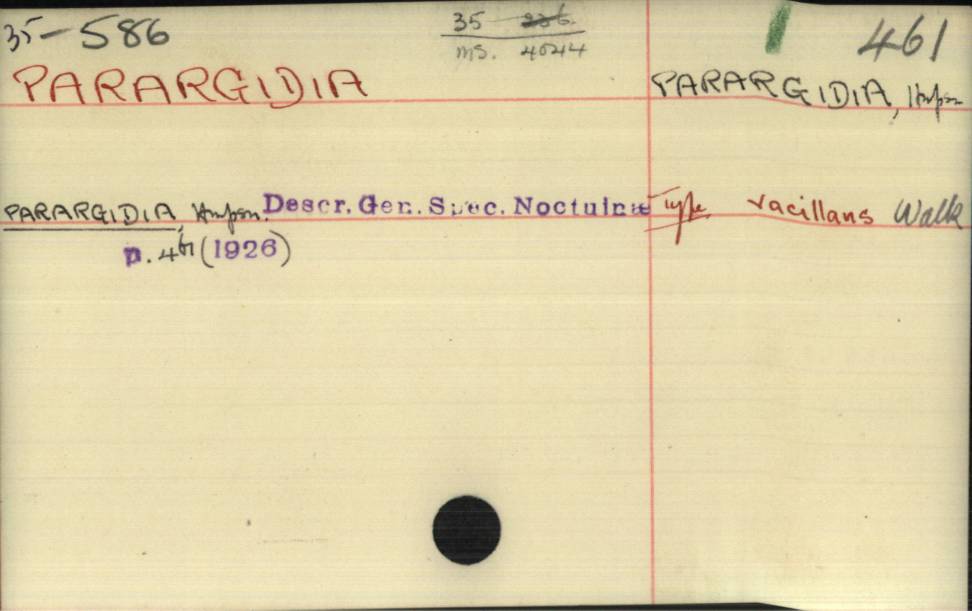 35-586
35 236
ms. 4044
461
PARARGIDIA
PARARGIDIA, Hmpsn
PARARGIDIA, Hmpsn. Descr. Gen. Spec. Noctuinæ Type vacillans Walk
p. 461 (1926)